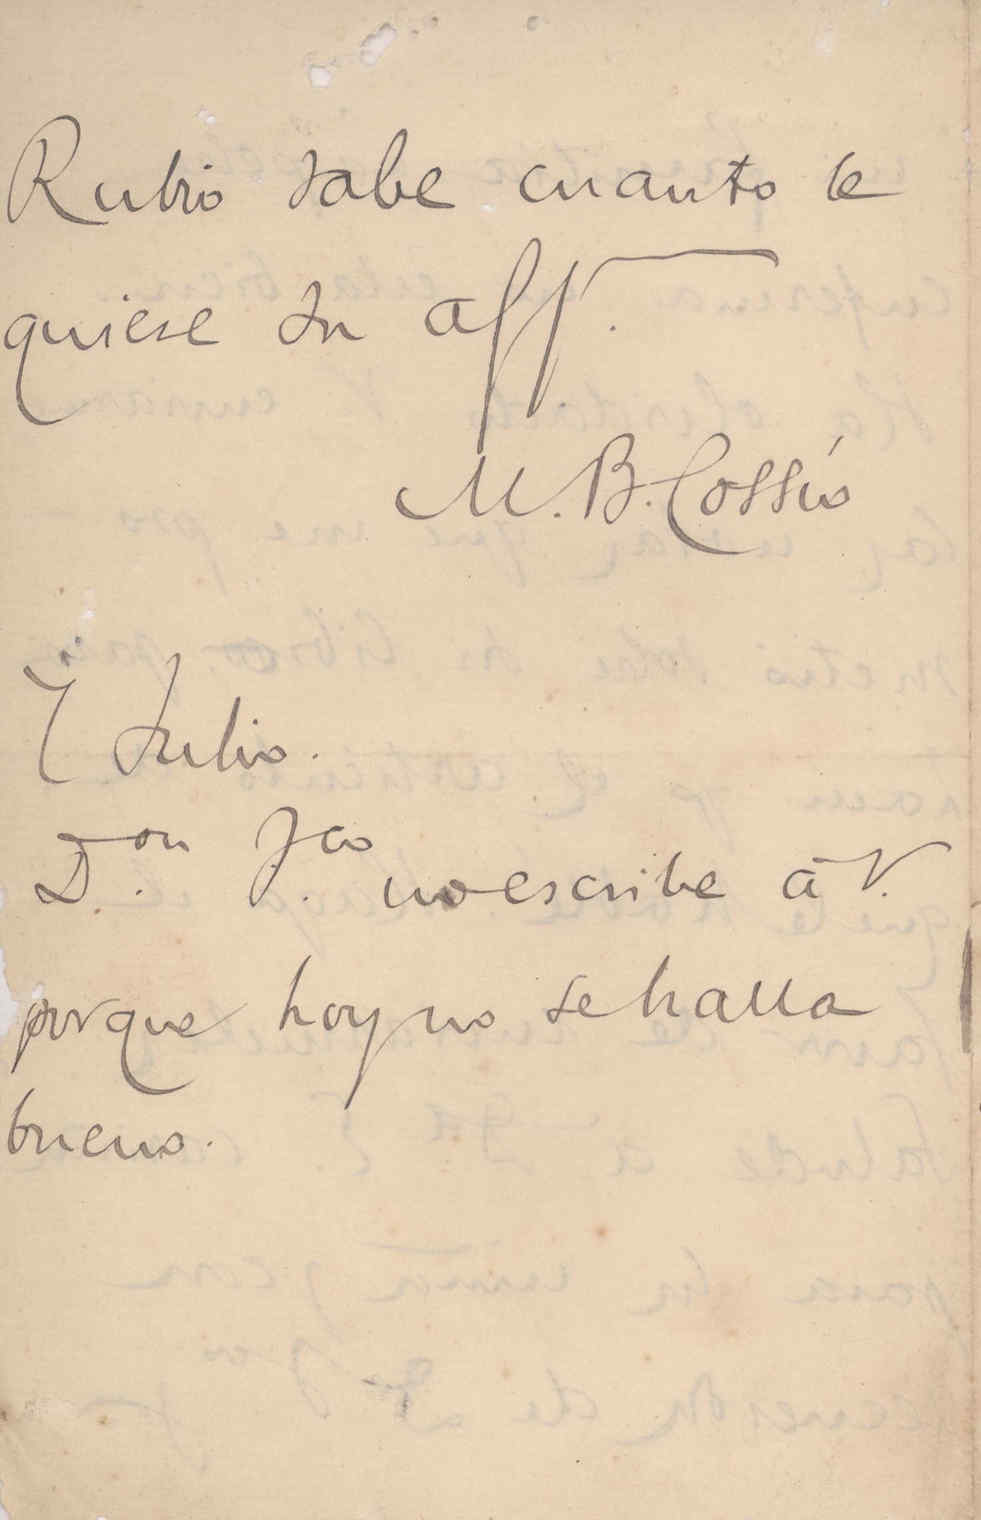 Rubio sabe cuanto le
quiere su aff.
M. B. Cossío
7 Julio.
Don Fco no escribe á V.
porque hoy no se halla
bueno.